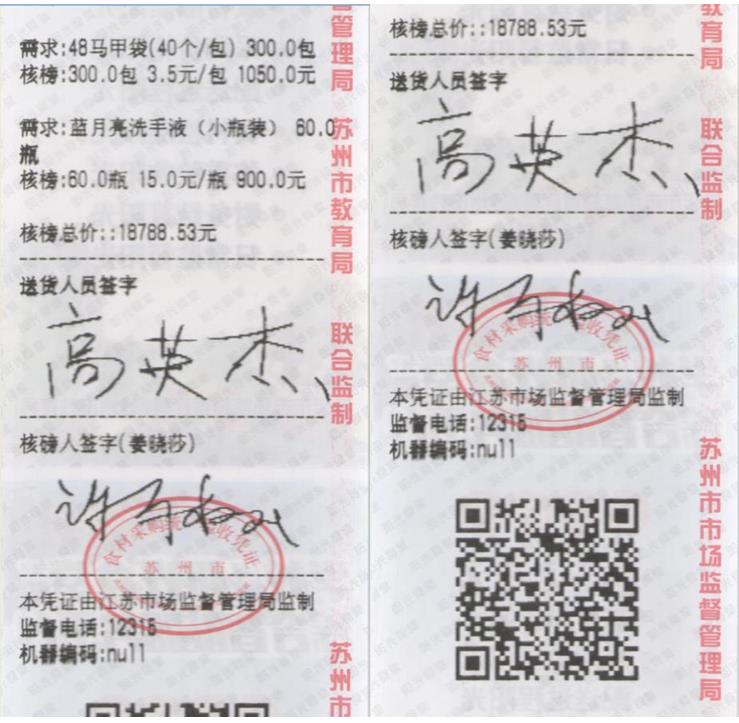 需求:48马甲袋(40个/包) 300.0包
核榜:300.0包 3.5元/包 1050.0元
需求:蓝月亮洗手液（小瓶装） 60.0
瓶
核榜:60.0瓶 15.0元/瓶 900.0元
核榜总价::18788.53元
送货人员签字
高英杰
核磅人签字(姜晓莎)
食材采购统 收凭证
苏州市
本凭证由江苏市场监督管理局监制
监督电话:12315
机器编码:null
管理局
苏州市教育局
联合监制
苏州市
核榜总价::18788.53元
送货人员签字
高英杰
核磅人签字(姜晓莎)
食材采购统 收凭证
苏州市
本凭证由江苏市场监督管理局监制
监督电话:12315
机器编码:null
教育局
联合监制
苏州市市场监督管理局